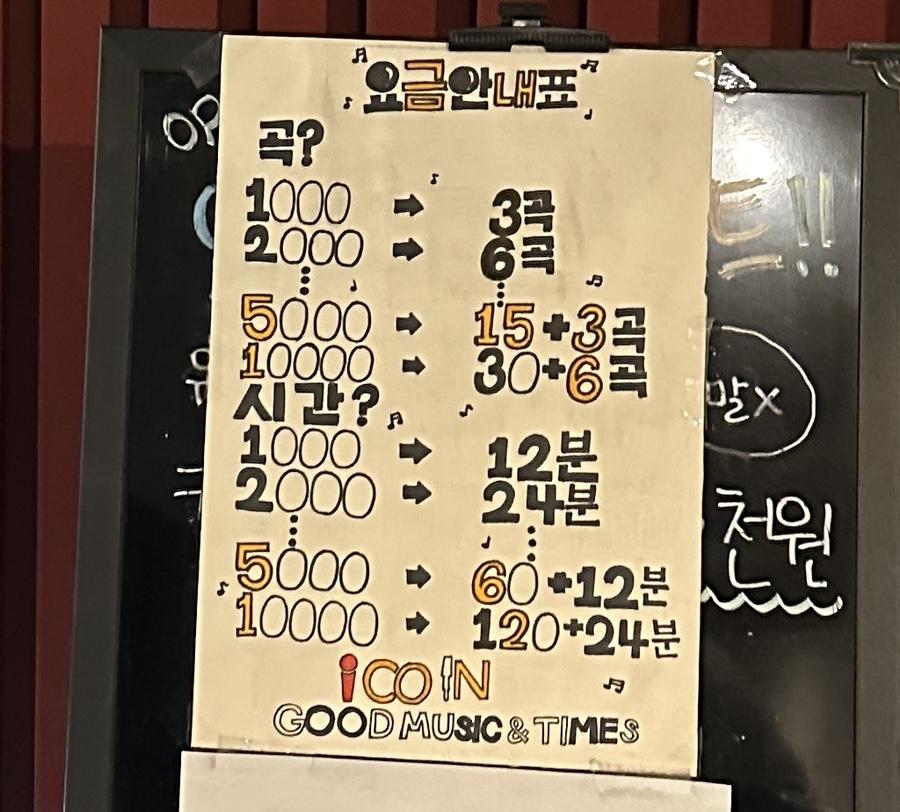 요금안내표
곡?
1000 → 3곡
2000 → 6곡
5000 → 15+3곡
10000 → 30+6곡
시간?
1000 → 12분
2000 → 24분
5000 → 60+12분
10000 → 120+24분
iCOIN
GOOD MUSIC & TIMES
OP
트!!
말X
천원